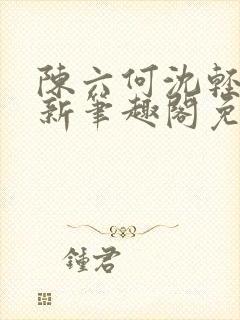 陳六何沈輕
新筆趣閣免
鍾君